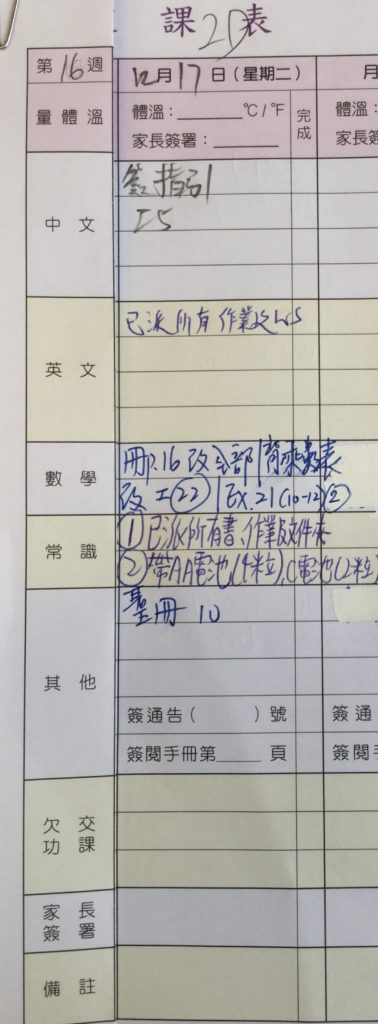 課 2D 表
第 16 週
12月17日(星期二)
月
量體溫
體溫:______°C/°F
家長簽署:______
完成
體溫:
家長簽
中文
簽指引
工5
英文
已派所有作業及WS
數學
冊P.16 改全部|背乘數表
改工(22)|Ex.21(10-12)(2)
常識
①已派所有書、作業及文件夾
②帶AA電池(4粒),C電池(2粒)
其他
聖冊10
簽通告( )號
簽通
簽閱手冊第____頁
簽閱手
欠交功課
家長簽署
備註